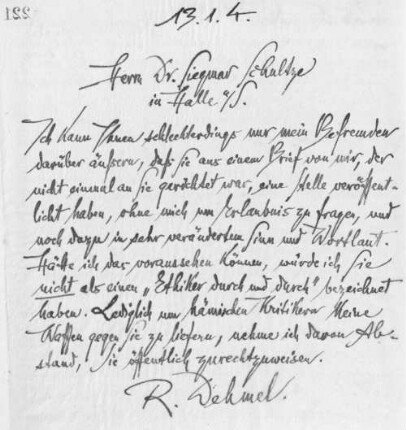 221
13.1.4.
Herrn Dr. Siegmar Schultze
in Halle a/S.
Ich kann Ihnen schlechterdings nur mein Befremden
darüber äußern, daß Sie aus einem Brief von mir, der
nicht einmal an Sie gerichtet war, eine Stelle veröffent-
licht haben, ohne mich um Erlaubnis zu fragen, und
noch dazu in sehr verändertem Sinn und Wortlaut.
Hätte ich das voraussehen können, würde ich Sie
nicht als einen „Ethiker durch und durch" bezeichnet
haben. Lediglich um hämischen Kritikern keine
Waffen gegen Sie zu liefern, nehme ich davon Ab-
stand, Sie öffentlich zurechtzuweisen.
R. Dehmel.